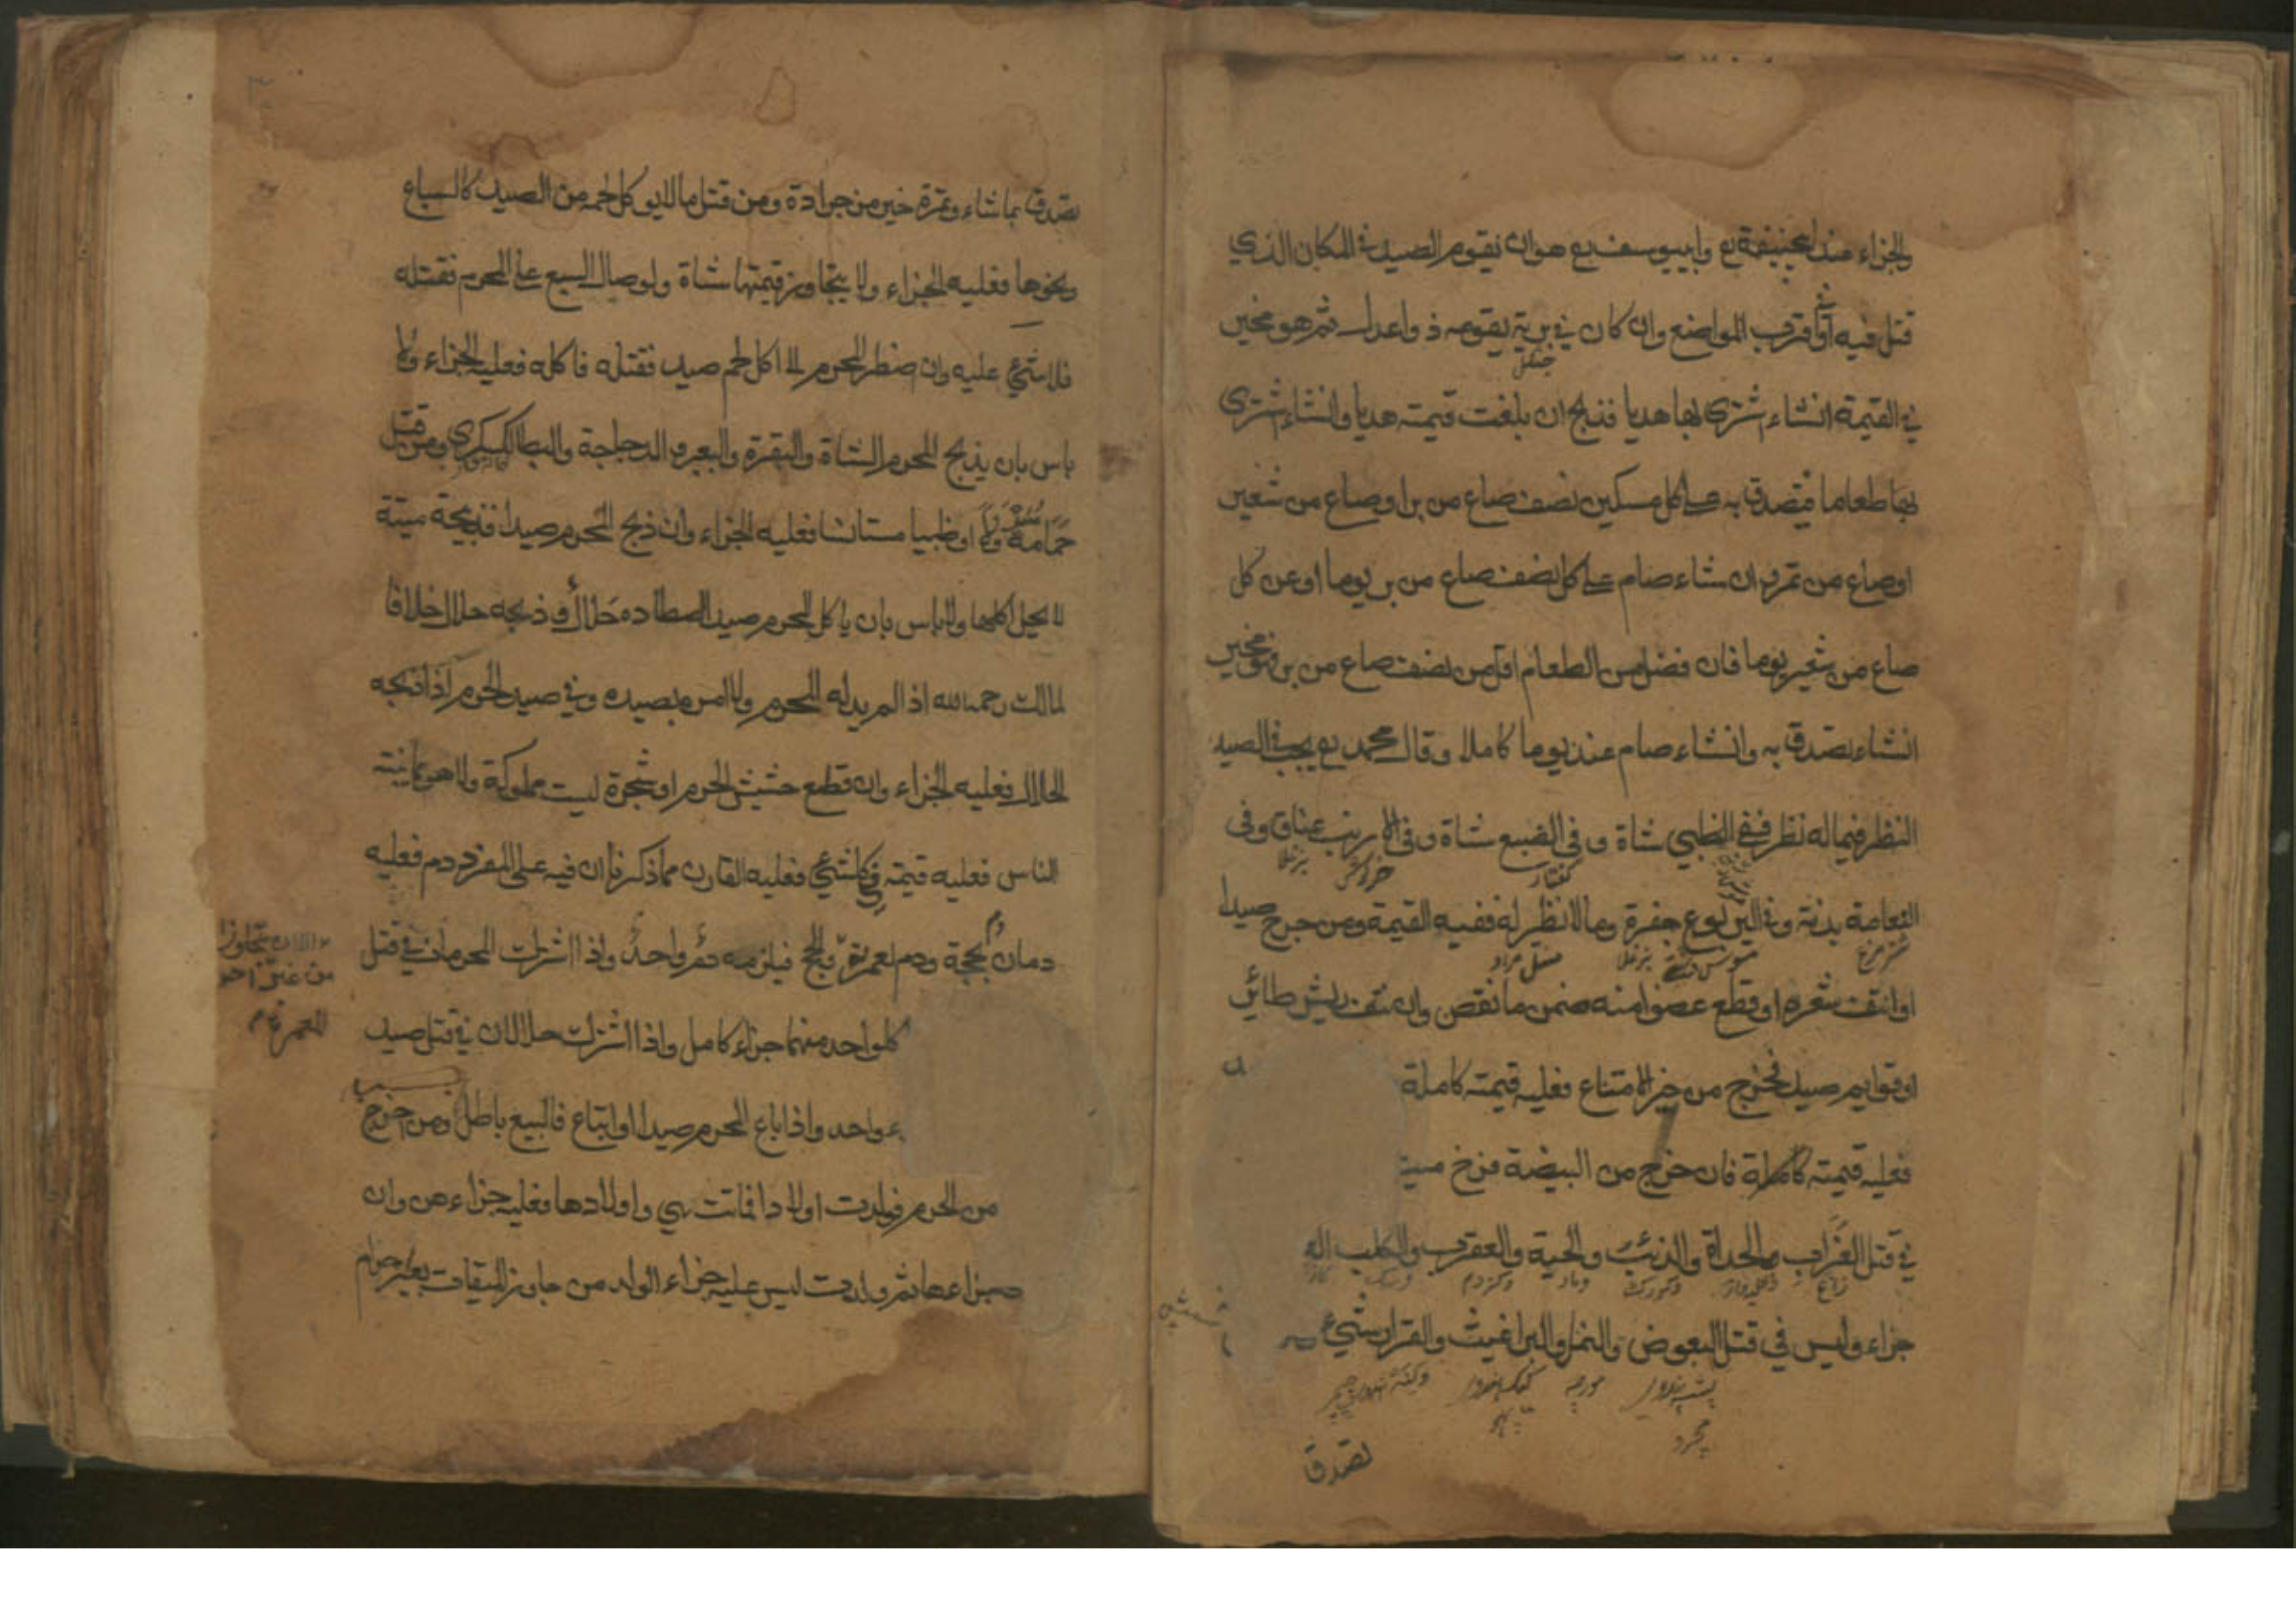 والجزاء عند ابيحنيفة رع وابييوسف رع هو ان يقوم الصيد في المكان الذي
قتل فيه او في اقرب المواضع وان كان في برية يقومه ذواعدل ثم هو مخير
جنكل
في القيمة انشاء اشترى بها هديا فذبح ان بلغت قيمته هديا وانشاء اشترى
بها طعاما فيتصدق به على كل مسكين نصف صاع من بر او صاع من شعير
او صاع من تمر وان شاء صام على كل نصف صاع من بر يوما او عن كل
صاع من شعير يوما فان فضل من الطعام اقل من نصف صاع من بر فهو مخير
انشاء تصدق به وانشاء صام عنه يوما كاملا وقال محمد رع يجب في الصيد
النظر فيما له نظر ففي الظبي شاة وفي الضبع شاة وفي الارنب عناق وفى
كفتار خركوش بزغله
النعامة بدنة وفي اليربوع جفرة وما لا نظر له ففيه القيمة ومن جرح صيدا
شتر مرغ بزغله
او انتف شعره او قطع عضوا منه ضمن ما نقص وان نتف ريش طائر
او قوايم صيد فخرج من حيز الامتناع فعليه قيمته كاملة
فعليه قيمته كاملة فان خرج من البيضة فرخ ميت
في قتل الغراب والحداة والذئب والحية والعقرب والكلب
زاغ ومار وكزدم وسك
جزاء وليس في قتل البعوض والنمل والبراغيث والقراد شيء
مورچه
تصدق
تصدق بما شاء وتمرة خير من جرادة ومن قتل ما لا يوكل لحمه من الصيد كالسباع
ونحوها فعليه الجزاء ولا يتجاوز قيمتها شاة ولو صال السبع على المحرم فقتله
فلا شيء عليه وان اضطر المحرم الى اكل لحم صيد فقتله فاكله فعليه الجزاء ولا
باس بان يذبح المحرم الشاة والبقرة والبعير والدجاجة والبط الكسكري ومن قتل
حمامة او ظبيا مستانسا فعليه الجزاء وان ذبح المحرم صيدا فذبيحته ميتة
لا يحل اكلها ولا باس بان ياكل المحرم صيد اصطاده حلال وذبحه حلال خلافا
لمالك رحمه الله اذا لم يدله المحرم ولا امره بصيده وفي صيد الحرم اذا ذبحه
الحلال فعليه الجزاء وان قطع حشيش الحرم او شجرة ليست مملوكة ولا هو مما ينبته
الناس فعليه قيمته وكل شيء فعليه القارن مما ذكرنا ان فيه على المفرد دم فعليه
دمان دم لحجة ودم لعمرته فيلزمه دم واحد واذا اشترك المحرمان في قتل
كل واحد منهما جزاء كامل واذا اشترك حلالان في قتل صيد
واحد واذا باع المحرم صيدا او ابتاع فالبيع باطل ومن اخرج
من الحرم فولدت اولادا فماتت هي واولادها فعليه جزاء هن وان
جزاءها ثم ولدت ليس عليه جزاء الولد من جاوز الميقات بغير احرام
الا ان يتجاوز
من غير احر
العمرة